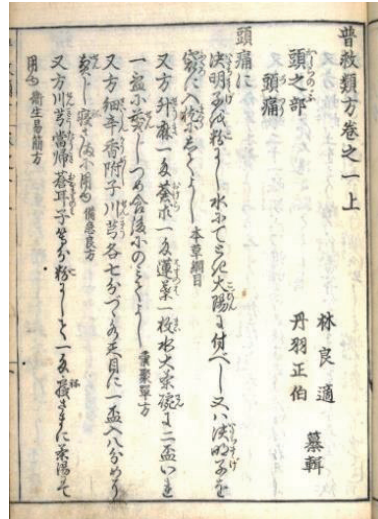 普救類方巻之一上
林良適
丹羽正伯 纂輯
頭之部
頭痛
頭痛に
決明子を粉にし水にてとき太陽に付べし又ハ決明子を
袋に入枕にしてよし 本草綱目
又方升麻一匁蒼朮一匁蓮葉一枚水大茶碗に二盃いれ
一盃に煎じつめ食後にのミてよし
又方細辛香附子川芎各七分づゝ天目に一盃入八分めに
煎じ 用ゆ 備急良方
又方川芎當帰蒼耳子等分粉にして一匁 に茶湯にて
用ゆ 衛生易簡方